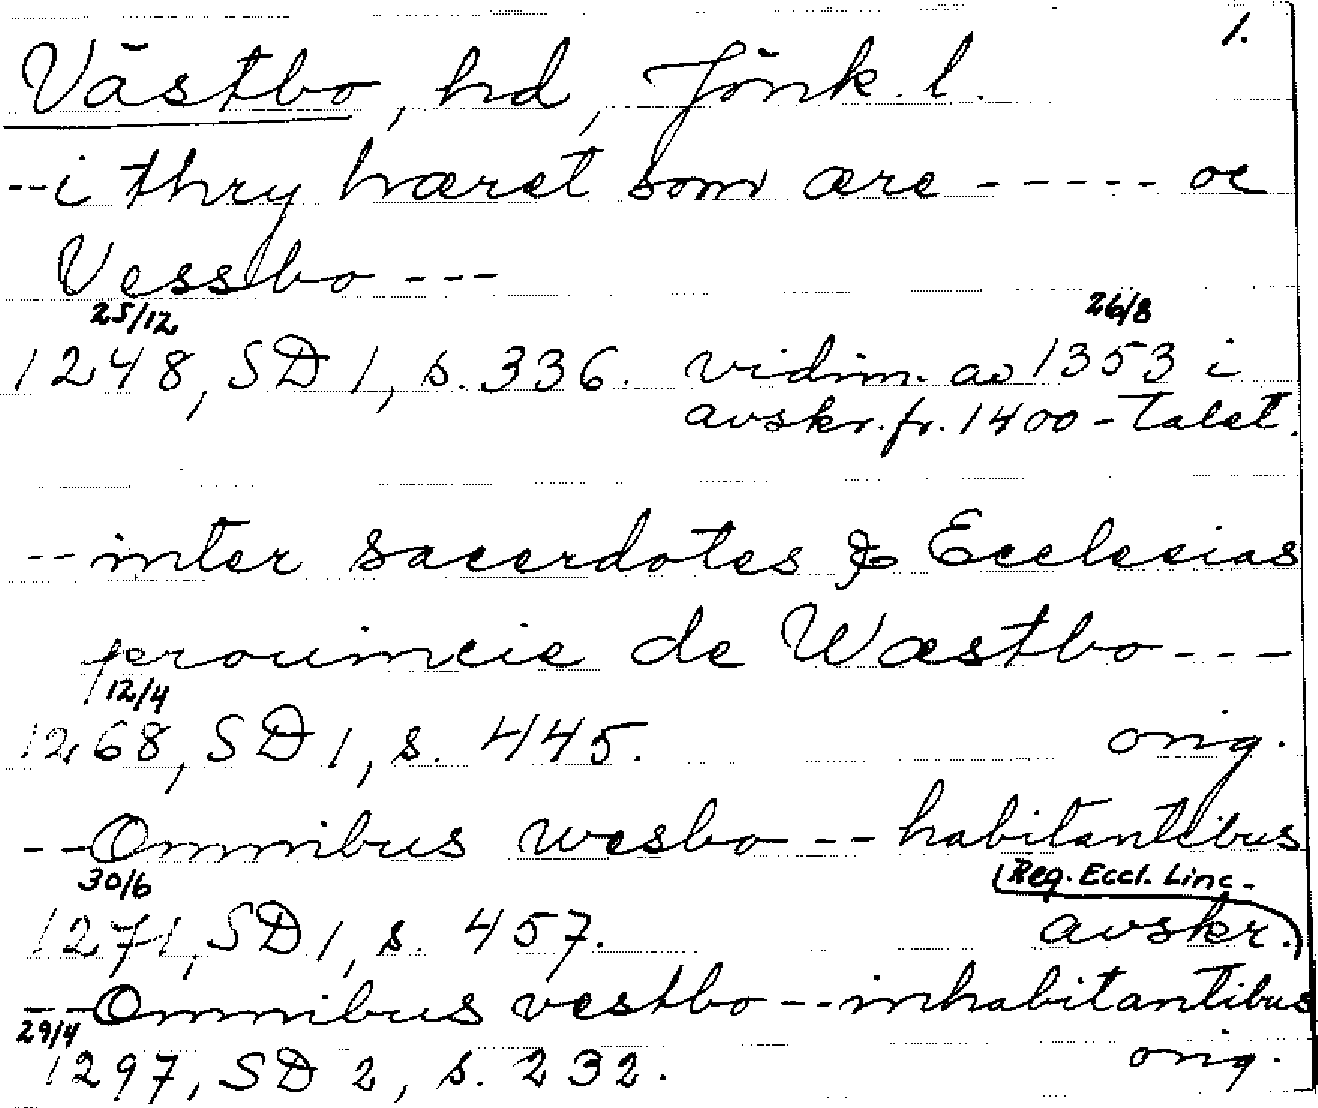 1.
Västbo, hd, Jönk. l.
--i thry hæret som ære ----- oc
Vessbo ---
25/12 26/8
1248, SD 1, s. 336. vidim. av 1353 i
avskr. fr. 1400-talet.
--inter sacerdotes & Ecclesias
prouincie de Wæstbo ---
12/4
1268, SD 1, s. 445. orig.
--Omnibus wesbo -- habitantibus
30/6 Reg. Eccl. Linc.
1271, SD 1, s. 457. avskr.
--Omnibus vestbo --inhabitantibus
29/4
1297, SD 2, s. 232. orig.